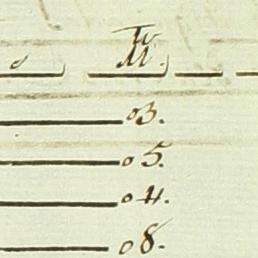 03.
05.
04.
08.